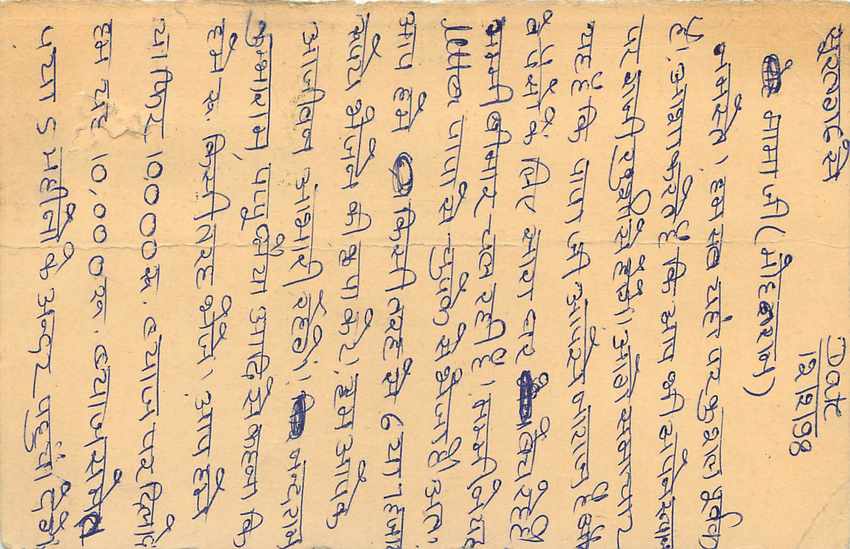 सूरतगढ से
Date
12/2/98
मामा जी (मोहनराम)
नमस्ते। हम सब यहां पर कुशल पूर्वक
है। आशा करते है कि आप भी अपने स्थान
पर राजी खुशी से होंगे। आगे समाचार
यह है कि पापा जी आपसे नाराज है
के लिए सारा घर बेच रहे है
मम्मी बीमार चल रही है। मम्मी ने यह
पापा से चुपके से भेजा है। अतः
आप हमें किसी तरह से 6 या 7 हजार
रूपये भेजने की कृपा करे। हम आपके
आजीवन आभारी रहेंगे। नन्दराम
कुम्भाराम, पप्पू भैया आदि से कहना कि
हमें रू. किसी तरह भेजे। आप हमें
या फिर 10000 रू. ब्याज पर दिला दे
हम यह 10,000 रू. ब्याज समेत
5 महीनों के अन्दर पहुंचा देंगे।